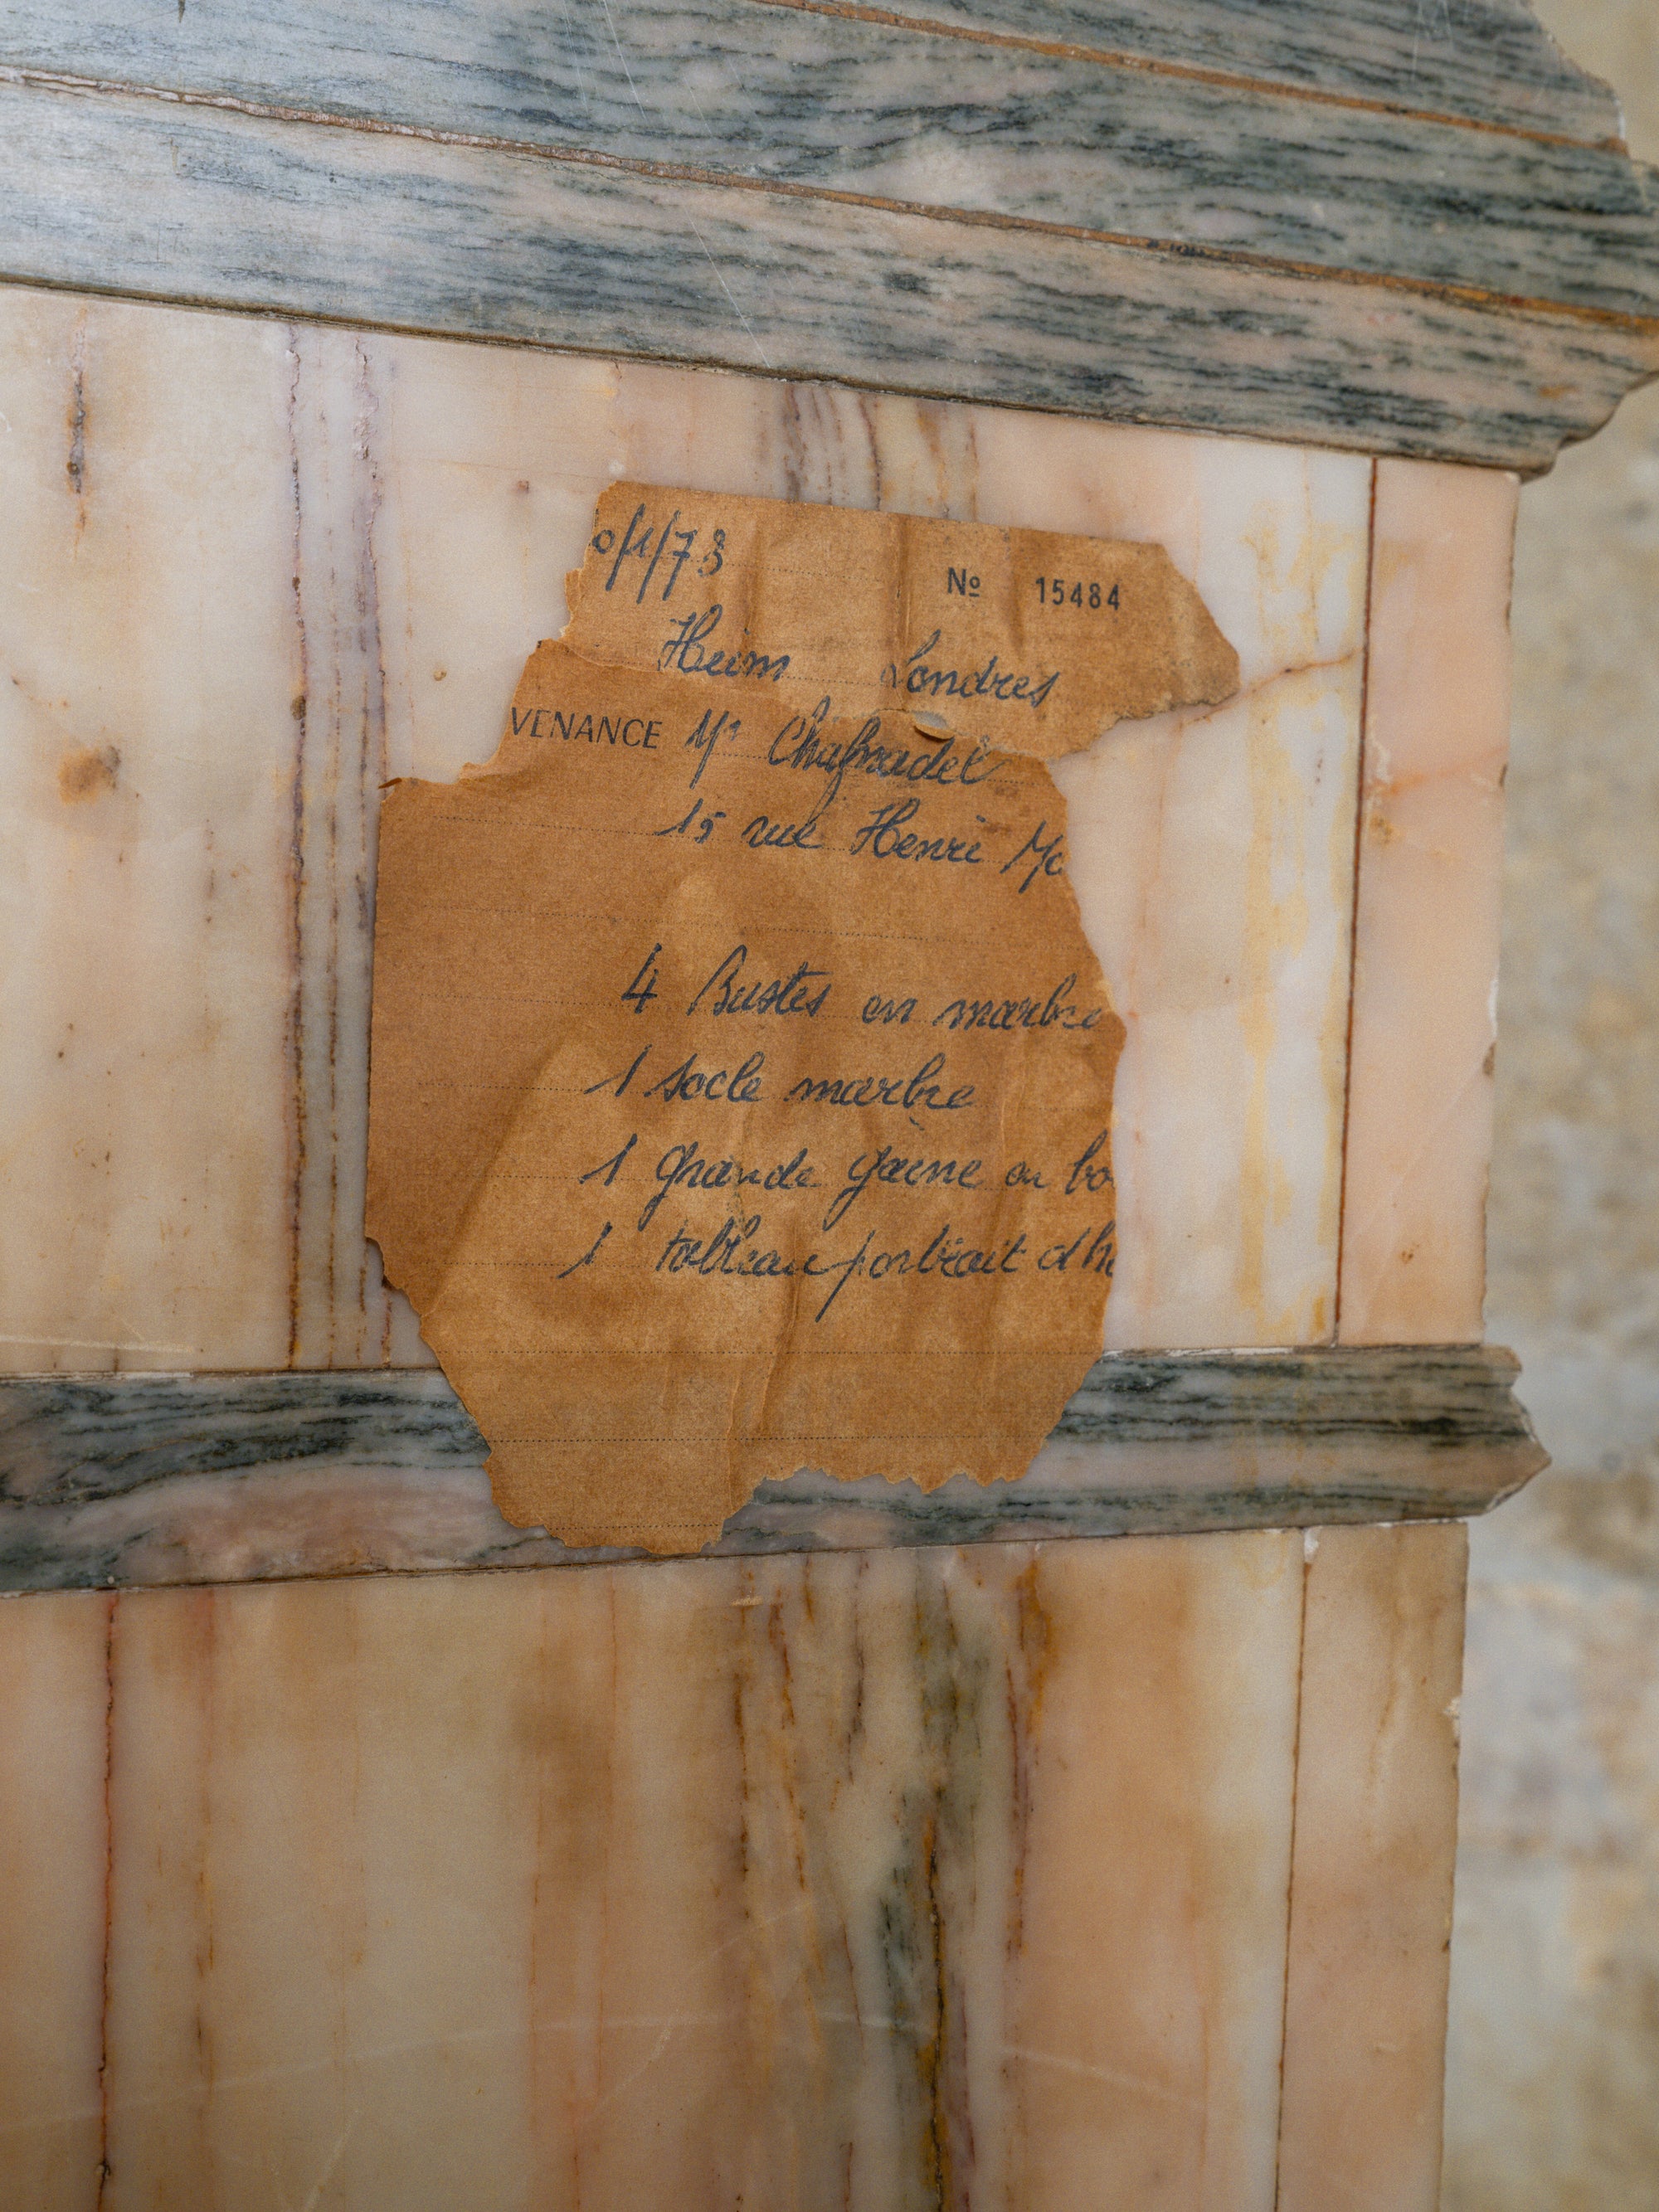 0/1/73 № 15484
Heim Londres
VENANCE Mr
15 rue Henri Mo
4 Bustes en marbre
1 socle marbre
1 grande gaine en bo
1 tableau portrait d'h